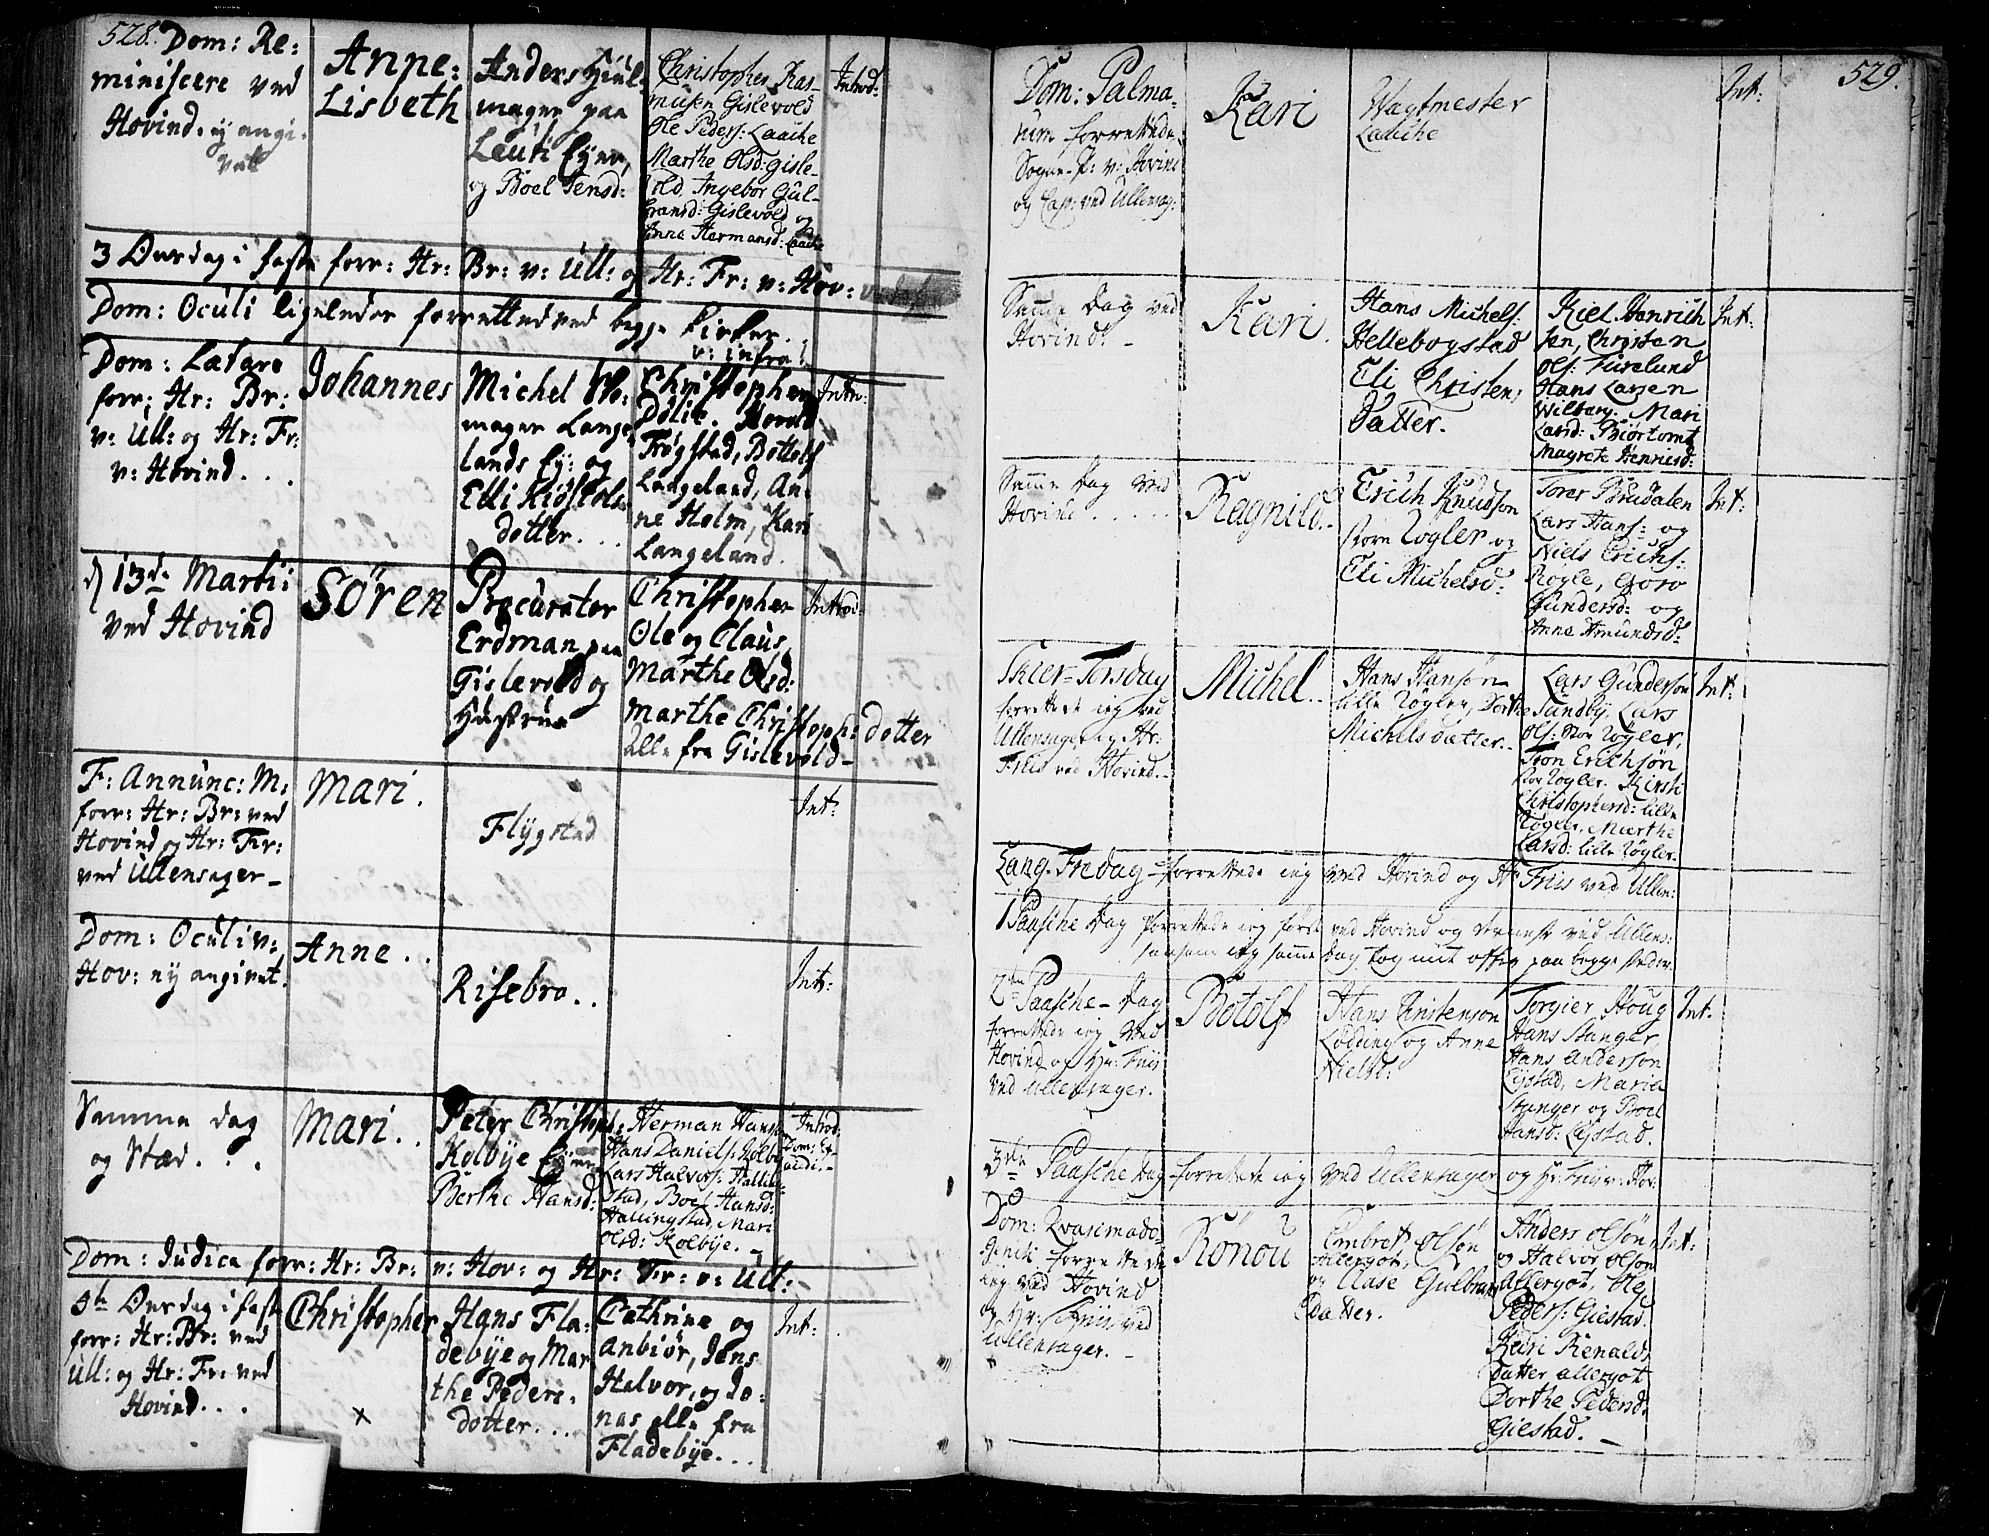 528.
Dom: Re:
miniscere ved
Hovind. ej angi-
vet
Anne:
Lisbeth
Anders Hiul-
mager paa
Leuti Eyer,
og Boel Jensd:
Christopher Ras-
musen Gislevold
Ole Peders: Laache
Marthe Olsd: Gisle-
vold, Ingebor Gul-
bransd: Gislevold og
Anne Hermansd: Laache
Introd:
3 Onsdag i faste forr: Hr: Br: v: Ull: og Hr: Fr: v: Hov:
Dom: Oculi ligeledes forretted ved begge Kirker.
v: infra!
Dom: Lætare
forr: Hr: Br:
v: Ull: og Hr: Fr:
v: Hovind...
Johannes
Michel Wo:
mager Lange-
lands Ey: og
Elli Kiøstols
dotter...
Christopher
Dølie. Hovel
Trøgstad, Bottolf
Langeland, An-
ne Holm, Kari
Langeland.
Intr:
d 13de Martii
ved Hovind
Sören
Procurator
Erdman paa
Gislevold og
Hustrue
Christopher
Ole og Claus,
Marthe Olsd:
Marthe Christoph: dotter
alle fra Gislevold-
Introd:
F: Annunc: M:
forr: Hr: Br: ved
Hovind og Hr: Fr:
ved Ullensager-
Mari.
Flÿgstad
Int:
Dom: Oculi v:
Hov: ej angivet.
Anne..
Risebro..
Int:
Samme dag
og Stæd...
Mari..
Peter Christoph:
Kolbye Eyer
Berthe Hansd:
Herman Hans:
Hans Daniels: Kolbye
Lars Halvors: Halling-
stad, Boel Hansd:
Hallingstad, Mari
Olsd: Kolbÿe.-
Introd:
Dom: Ex-
audi.-
Dom: Judica forr: Hr: Br: v: Hov: og Hr: Fr: v: Ull:
5te Onsdag i faste
forr: Hr: Br: ved
Ull: og Hr: Fr: ved
Hovind...
Christopher
x
Hans Fla:
debÿe og Mar
the Peders-
dotter...
Cathrine og
Anbiør, Jens
Halvor, og Jo:
nas alle fra
Fladebÿe...
Int:
529.
Dom: Palma-
rum forrettede
Sogne-P: v: Hovind
og Cap: ved Ullensag:
Kari
Wagtmester
Laache
Int:
Samme Dag ved
Hovind.-
Kari.
Hans Michels:
Hellebogstad
Eli Christens
Datter.
Kiel Henrich
sen, Christen
Ols: Furelund
Hans Larsen
Wilberg. Mari
Larsd: Biørtomt
Magrete Henricsd:
Int:
Samme Dag ved
Hovind.....
Ragnild.
Erich Knudson
store Røgler og
Eli Michelsd:
Torer Brudalen
Lars Hans: og
Niels Erichs:
Røgle, Goro
Gundersd: og
Anne Amundsd:
Int:
Skier-Torsdag
forrettede ieg ved
Ullensager og Hr:
Friis ved Hovind.-
Michel..
Hans Hansøn
lille Røgler, Dorthe
Michelsdatter..
Lars Gunderson
Sundby. Lars
Ols: stor Røgler,
Tron Erichsøn
stor Røgler. Kirsti
Christophersd: lille
Røgler. Marthe
Larsd: lille Røgler.
Int:
Lang-Fredag forrettede ieg ved Hovind og Hr Friis ved Ullen:
1 Paasche Dag forrettede ieg først ved Hovind og dernest ved Ullens:
saasom ieg samme dag tog mit offer paa begge steder.
2den Paasche-Dag
forrettede ieg ved
Hovind og Hr: Friis
ved Ullensager.
Botolf
Hans Christenson
Lødding og Anne
Nielsd:
Torgier Houg
Hans Stanger
Hans Anderson
Lystad, Maria
Stanger og Boel
Hansd: Lystad.
Int.
3die Paasche Dag forrettede ieg ved Ullensager og Hr: Friis v: Hov:
Dom: Qvasimodo
Geniti forrettede
ieg ved Hovind
og Hr: Friis ved
Ullensager.-
Rönou
Embret Olsøn
Allergot,
og Aase Gulbrands
Datter.
Anders Olsøn
og Halvor Olson
Allergot, Ole
Peders: Giestad.
Kari Renalds
datter allergot
Dorthe Pedersd:
Giestad.-
Int: